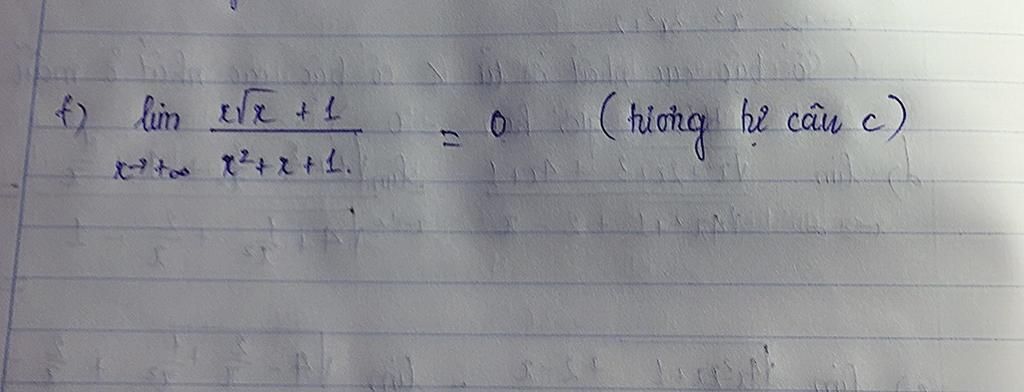 f) lim x√x + 1 / x² + x + 1. = 0 (tương tự câu c)
x→+∞